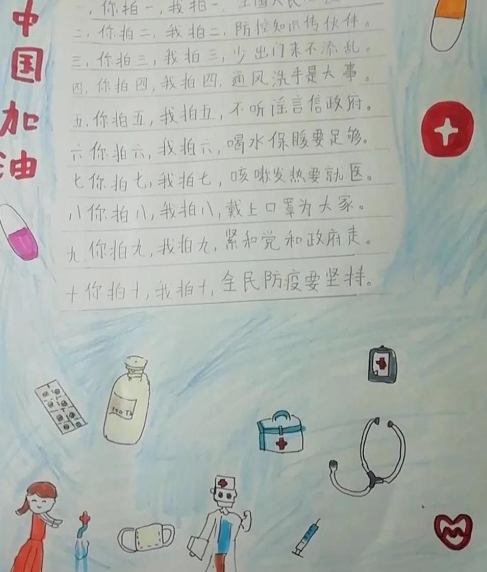 中国加油
一,你拍一,我拍一.全国人民
二,你拍二,我拍二,防控知识传伙伴。
三,你拍三,我拍三,少出门来不添乱。
四,你拍四,我拍四,通风洗手是大事。
五,你拍五,我拍五,不听谣言信政府。
六你拍六,我拍六,喝水保暖要足够。
七你拍七,我拍七,咳嗽发热要就医。
八你拍八,我拍八,戴上口罩为大家。
九,你拍九,我拍九,紧和党和政府走。
十你拍十,我拍十,全民防疫要坚持。